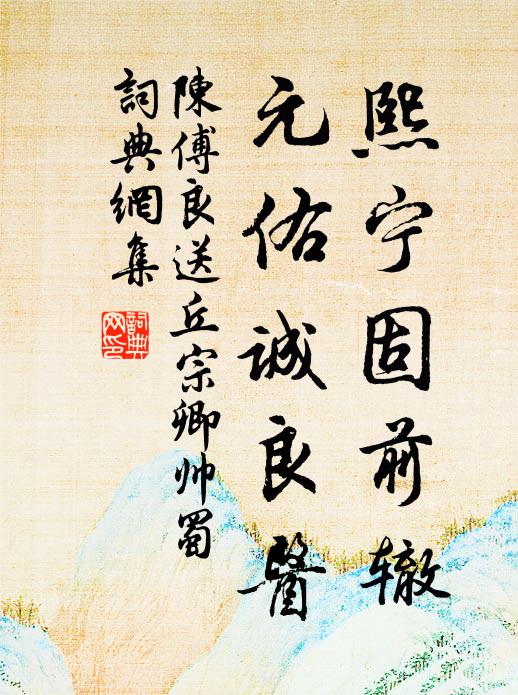 熙宁固前辙
元佑诚良医
陳傅良送丘宗卿帅蜀
詞典網集
詞典网印